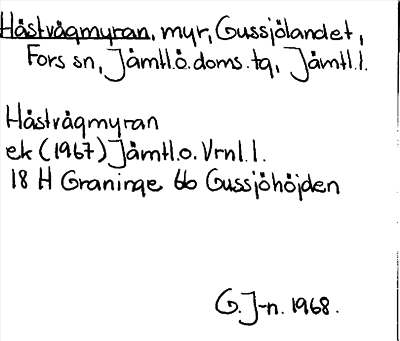 Håstvågmyran, myr, Gussjölandet,
Fors sn, Jämtl.ö.doms.tg, Jämtl.l.
Håstvågmyran
ek (1967) Jämtl.o. Vrnl.l.
18 H Graninge 6b Gussjöhöjden
G. J-n. 1968.